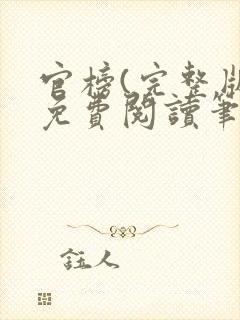 官榜(完整版
免費閱讀筆
註人